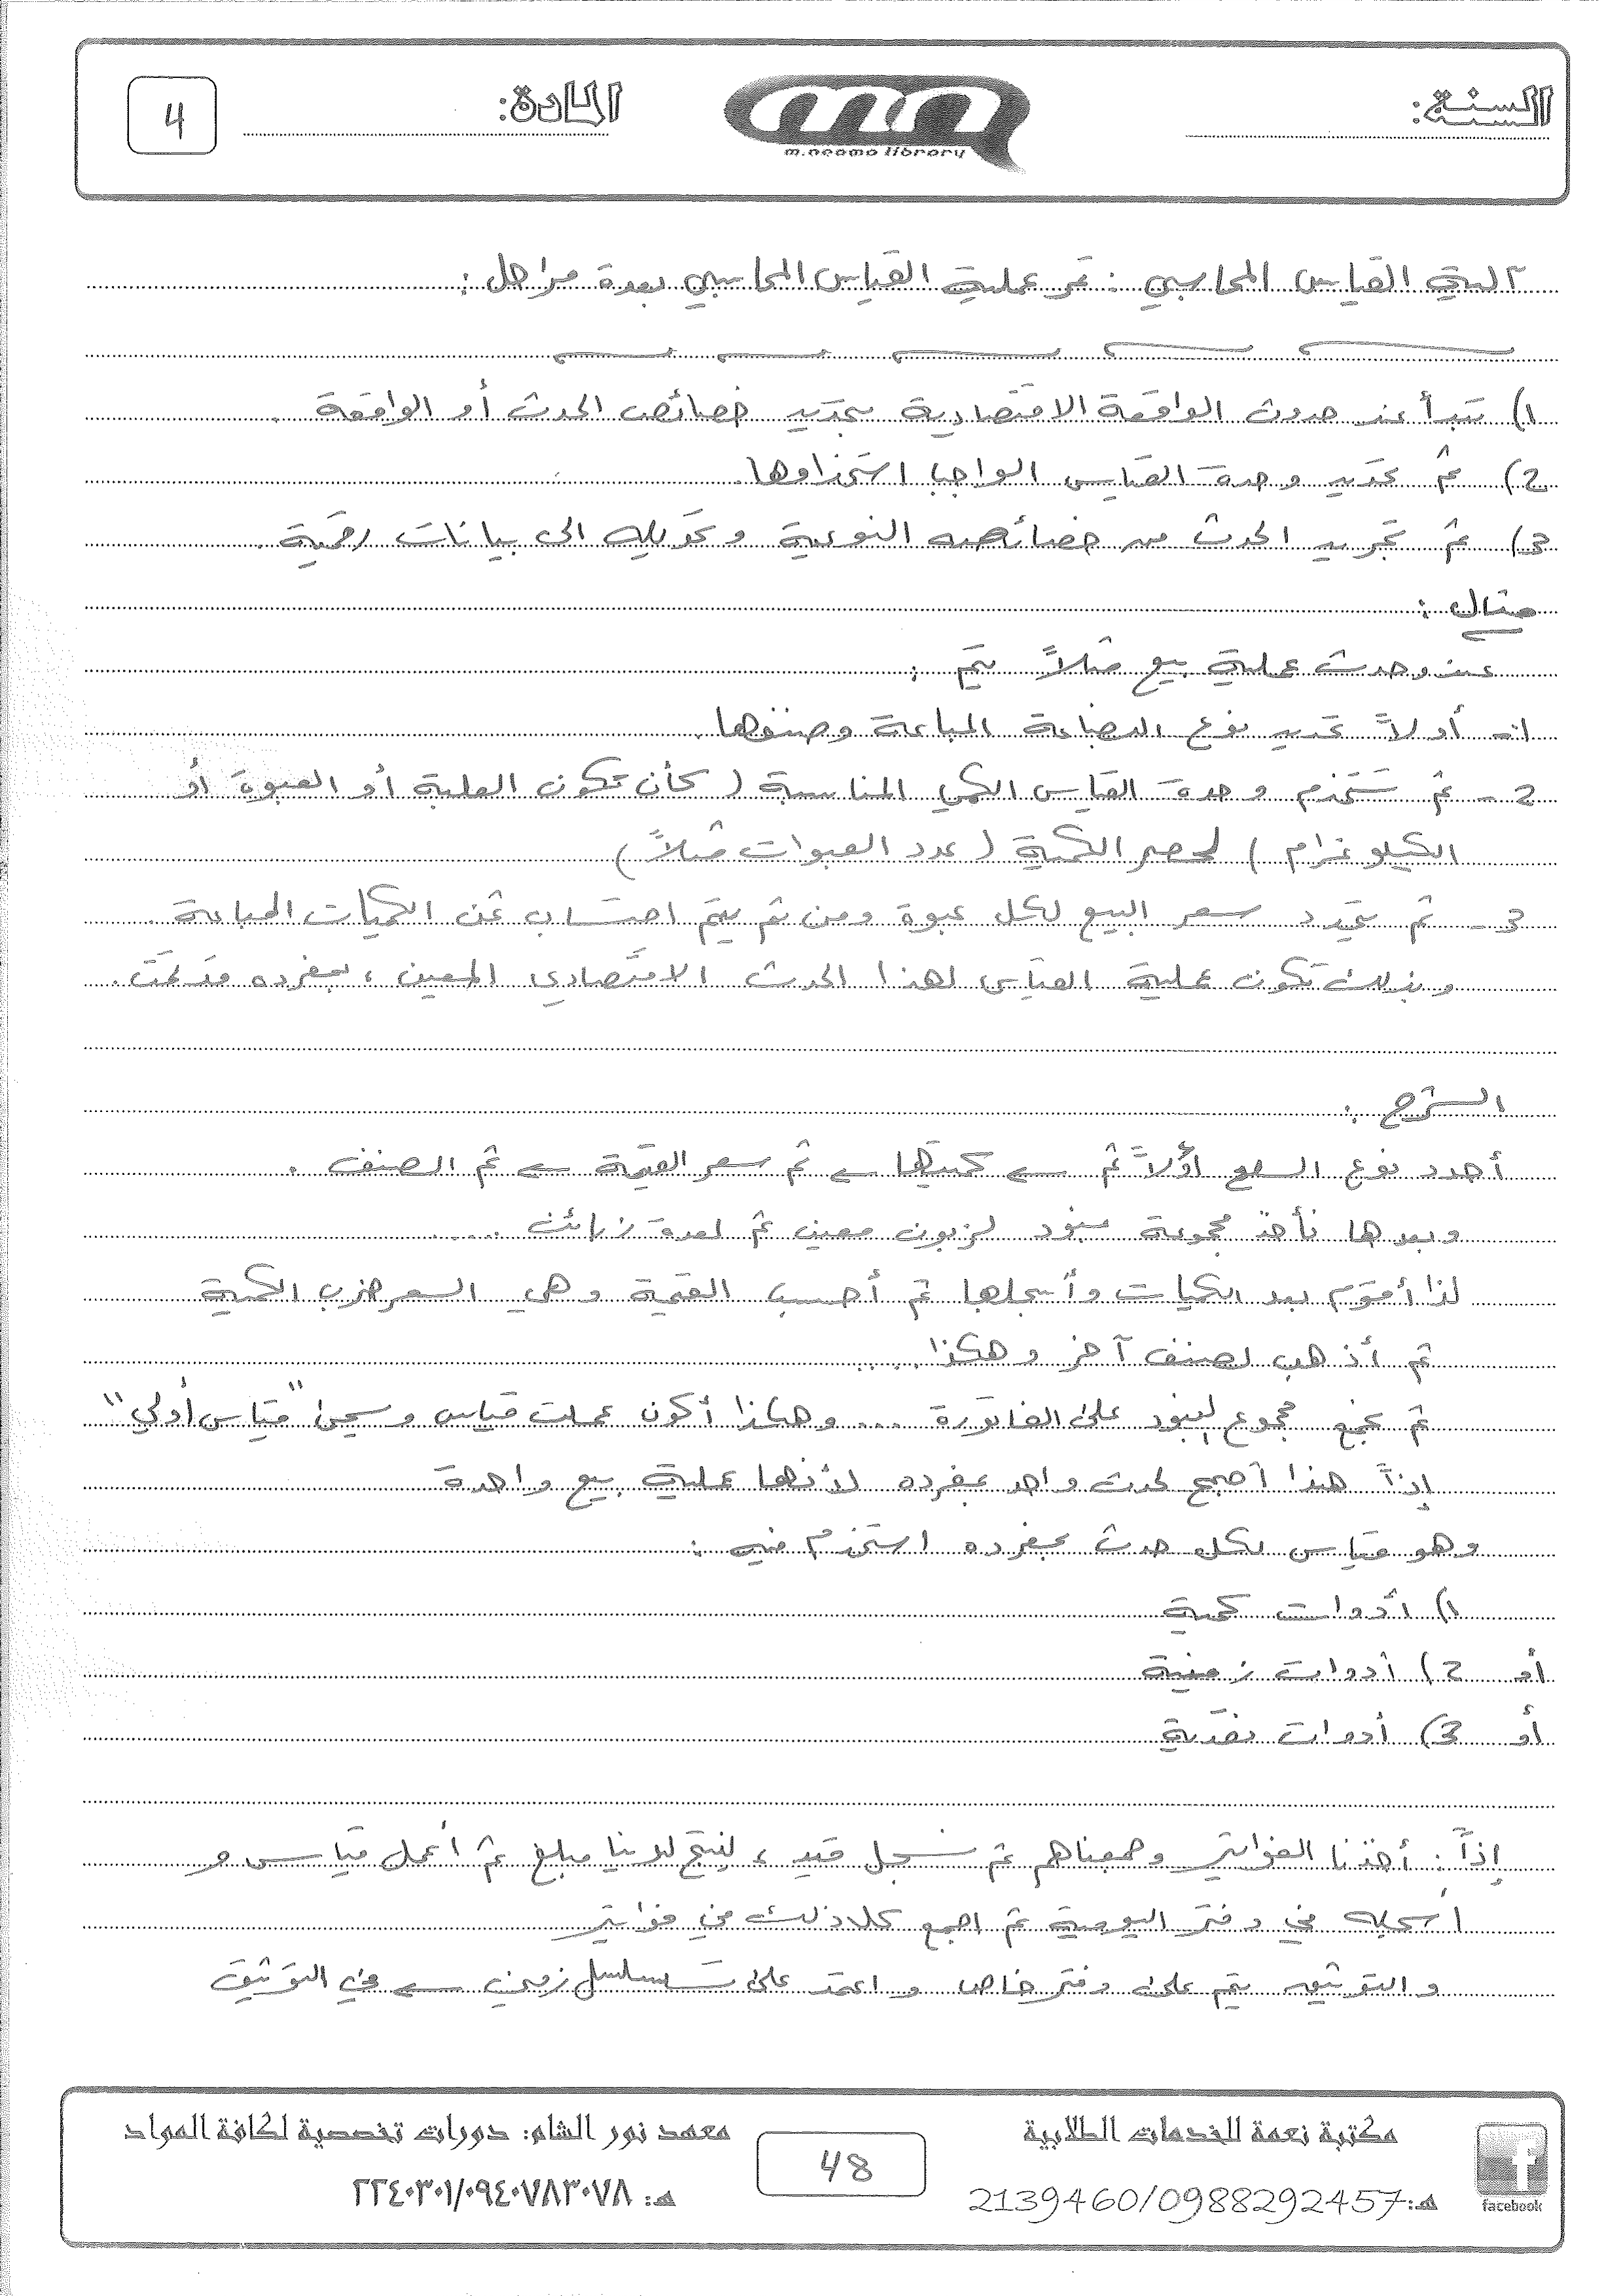 السنة:
m.neama library
المادة:
4
آلية القياس المحاسبي : تمر عملية القياس المحاسبي بعدة مراحل :
1) تبدأ عند حدوث الواقعة الاقتصادية بتحديد خصائص الحدث أو الواقعة .
2) ثم تحديد وحدة القياس الواجب استخدامها .
3) ثم تجريد الحدث من خصائصه النوعية وتحويله الى بيانات رقمية .
مثال :
عند حدث عملية بيع مثلاً يتم :
1- أولاً تحديد نوع البضاعة المباعة وصنفها .
2- ثم تستخدم وحدة القياس الكمي المناسبة ( كأن تكون العلبة أو العبوة أو
الكيلو غرام ) لحصر الكمية ( عدد العبوات مثلاً )
3- ثم يتحدد سعر البيع لكل عبوة ومن ثم يتم احتساب ثمن الكميات المباعة .
وبذلك تكون عملية القياس لهذا الحدث الاقتصادي المعين ، بمفرده قد تمت .
الشرح :
أحدد نوع السلع أولاً ثم ← كميتها ← ثم سعر القيمة ← ثم الصنف .
وبعدها نأخذ مجموعة بنود لزبون معين ثم لعدة زبائن .....
لذا أقوم بعد الكميات وأسجلها ثم أحسب القيمة وهي السعر ضرب الكمية
ثم أذهب لصنف آخر وهكذا .....
ثم نجمع مجموع البنود على الفاتورة ... وهكذا أكون عملت قياس وسمي "قياس أولي"
إذاً هذا أصبح لحدث واحد بمفرده لأنها عملية بيع واحدة
وهو قياس لكل حدث بمفرده استخدم فيه :
1) أدوات كمية
أو 2) أدوات زمنية
أو 3) أدوات نقدية
إذاً : أخذنا الفواتير وجمعناهم ثم نسجل قيد ، لينتج لدينا مبلغ ثم أعمل قياس و
أسجله في دفتر اليومية ثم اجمع كل ذلك في فواتير
و التوثيق يتم على دفتر خاص و اعتمد على تسلسل زمني ← في التوثيق
facebook
مكتبة نعمة للخدمات الطلابية
هـ: 2139460/0988292457
48
معهد نور الشام: دورات تخصصية لكافة المواد
هـ: ٢٢٤٠٣٠١/٠٩٤٠٧٨٣٠٧٨